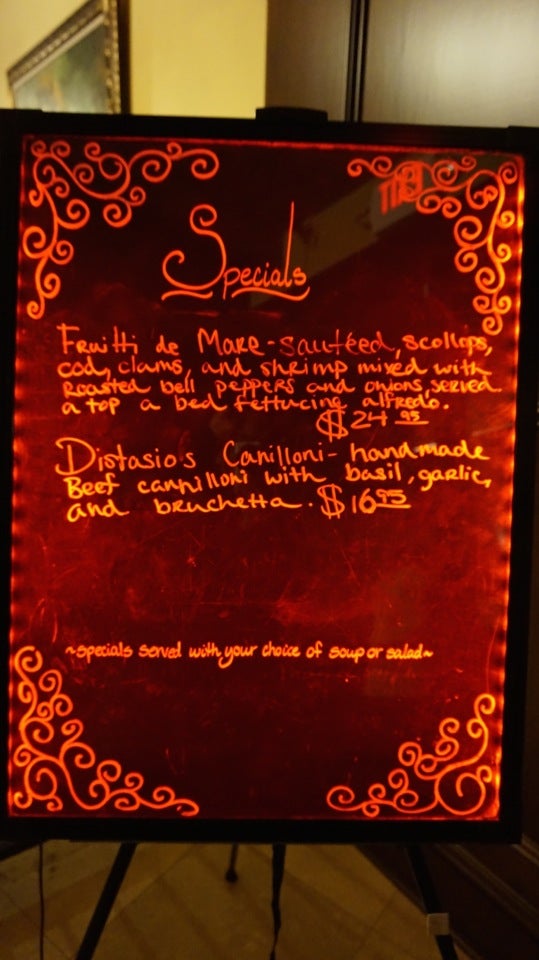 Specials
Fruitti de Mare - sautéed, scollops,
cod, clams, and shrimp mixed with
roasted bell peppers and onions, served
a top a bed fettucine alfredo.
$24 95
Distasio's Canilloni - handmade
Beef cannilloni with basil, garlic,
and bruchetta. $16 95
~specials served with your choice of soup or salad~